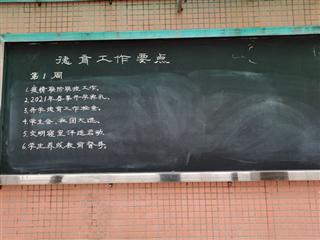 德育工作要点
第1周
1.疫情联防联控工作。
2.2021年春季开学典礼。
3.开学德育工作检查。
4.学生会、社团大选。
5.文明寝室评选启动。
6.学生养成教育督导。